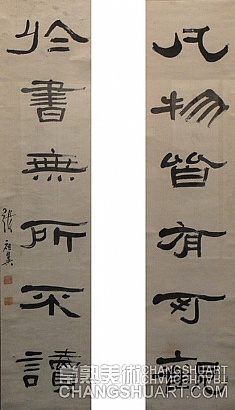 凡物皆有可觀
於書無所不讀
張祖翼
常熟美術 CHANGSHUART
CHANGSHUART.COM